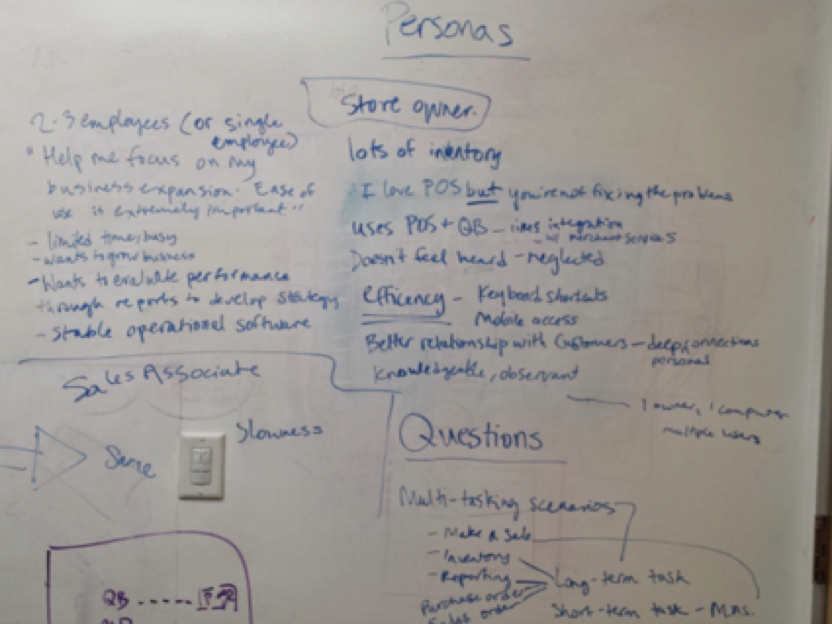 Personas
Store owner.
2-3 employees (or single
employee)
"Help me focus on my
business expansion. Ease of
use is extremely important."
- limited time, busy
- wants to grow business
- Wants to evaluate performance
through reports to develop strategy
- Stable operational software
lots of inventory
I love POS but you're not fixing the problems
uses POS + QB - likes integration
- w/ merchant services
Doesn't feel heard - neglected
Efficency - Keyboard shortcuts
Mobile access
Better relationship with customers - deep connections
personal
Knowledgeable, observant
1 owner, 1 computer
multiple users
Sales Associate
Same
Slowness
Questions
Multi-tasking scenarios
- Make a Sale
- Inventory
- Reporting
Purchase order
Sales order
Long-term task
Short-term task -
QB